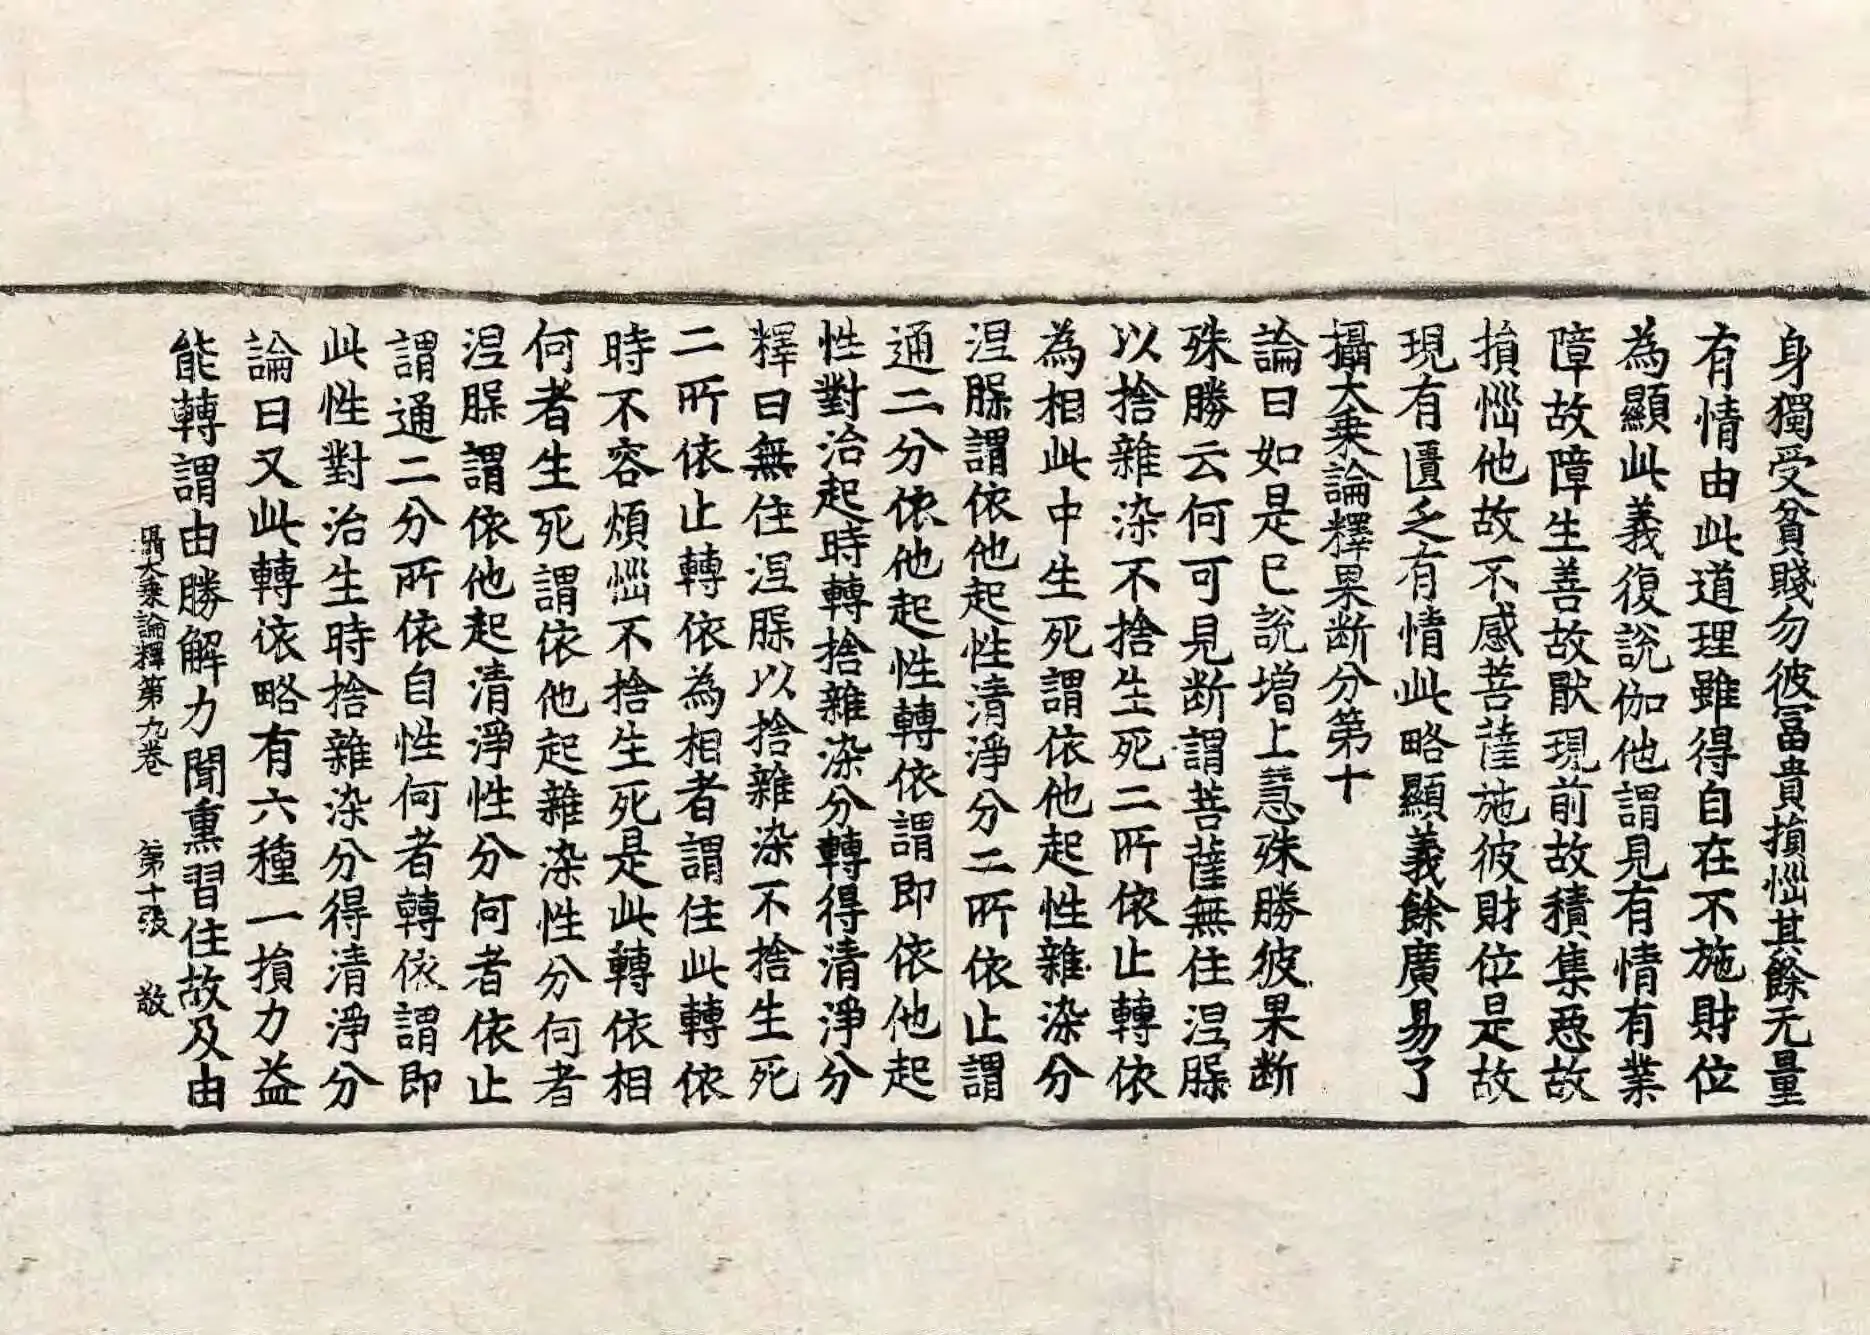 身獨受貧賤勿彼冨貴損惱其餘无量
有情由此道理雖得自在不施財位
為顯此義復說伽他謂見有情有業
障故障生善故猒現前故積集惡故
損惱他故不感菩薩施彼財位是故
現有匱乏有情此略顯義餘廣易了
攝大乗論釋果断分第十
論曰如是已說増上慧殊勝彼果断
殊勝云何可見断謂菩薩無住涅槃
以捨雜染不捨生死二所依止轉依
為相此中生死謂依他起性雜染分
涅槃謂依他起性清淨分二所依止謂
通二分依他起性轉依謂即依他起
性對治起時轉捨雜染分轉得清淨分
釋曰無住涅槃以捨雜染不捨生死
二所依止轉依為相者謂住此轉依
時不容煩惱不捨生死是此轉依相
何者生死謂依他起雜染性分何者
涅槃謂依他起清淨性分何者依止
謂通二分所依自性何者轉依謂即
此性對治生時捨雜染分得清淨分
論曰又此轉依略有六種一損力益
能轉謂由勝解力聞熏習住故及由
攝大乗論釋第九卷　第十張　敬